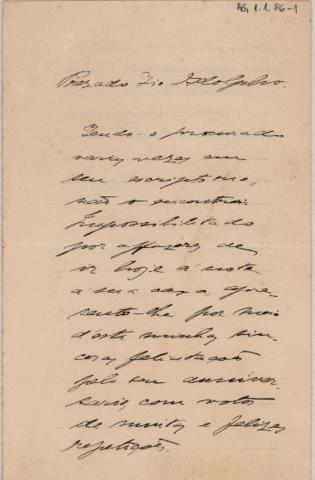 AG 1.1.86-1
Prezado Tio Adolpho.
Tendo-o procurado
varias vezes em
seu escriptorio,
não o encontrei.
Impossibilitado
por affazeres de
ir hoje á noite
a sua casa, apre-
sento-lhe por meio
d'esta minhas sin-
ceras felicitações
pelo seu anniver-
sario, com votos
de muitas e felizes
repetições.